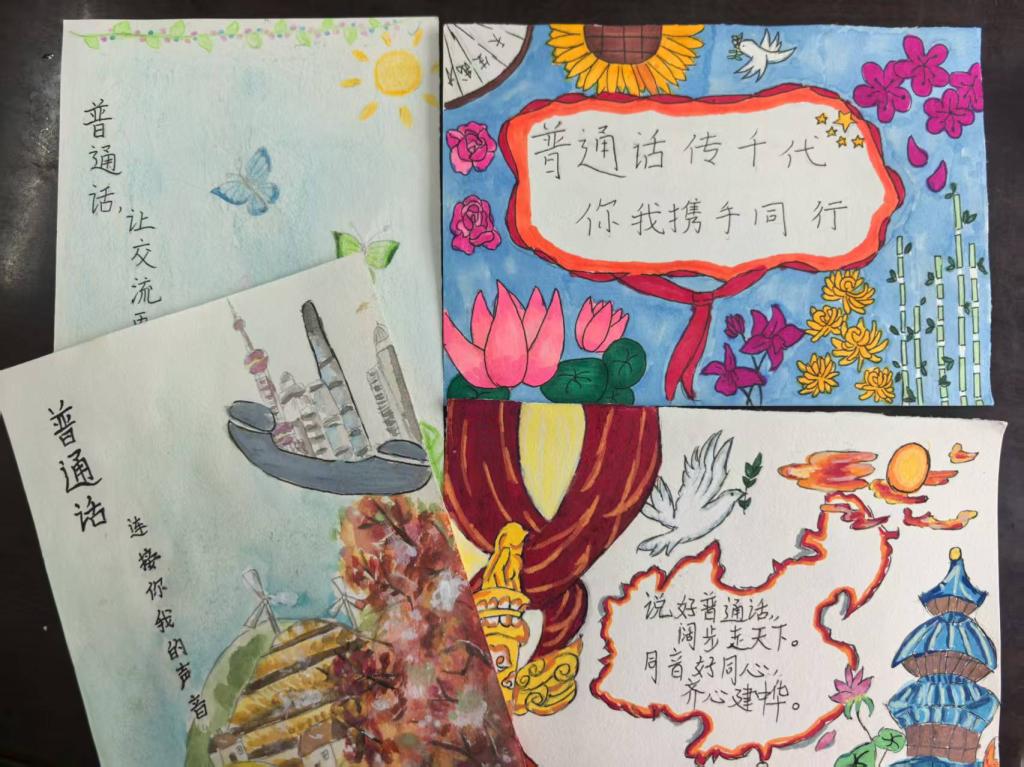 普通话,
让交流
普通话传千代
你我携手同行
普通话
连接你我的声音
说好普通话,
阔步走天下。
同音好同心,
齐心建中华。